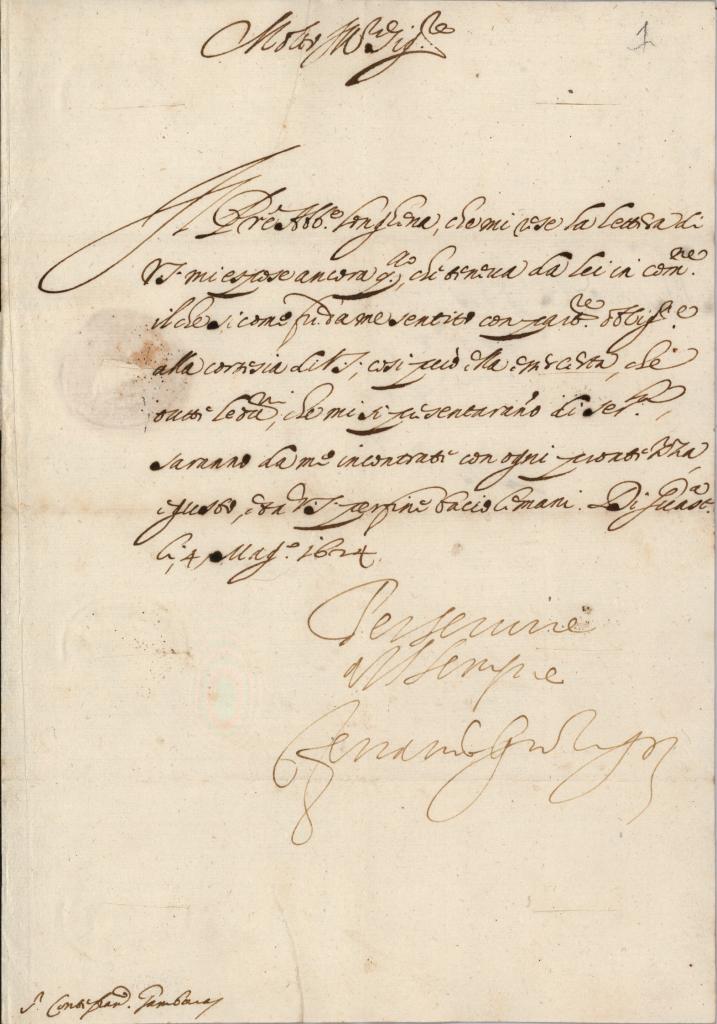 Molto Ill.re Sig.re
1
Il Pre Abb.e Longhena, che mi rese la lettera di
V.S. mi espose ancora q.to, che teneva da lei in com.ne
il che sicome fu da me sentito con part.re oblig.ne
alla cortesia di V.S., cosi può ella esser certa, che
tutte le occ.ni, che mi si presentaranno di ser.la,
saranno da me incontrate con ogni prontezza,
e gusto, et a V.S. per fine bacio le mani. Di Guast.a
li, 4 Mag.o 1624
Per servire
a V.S. sempre
Ferrante Gonzaga
S.r Conte Gambara